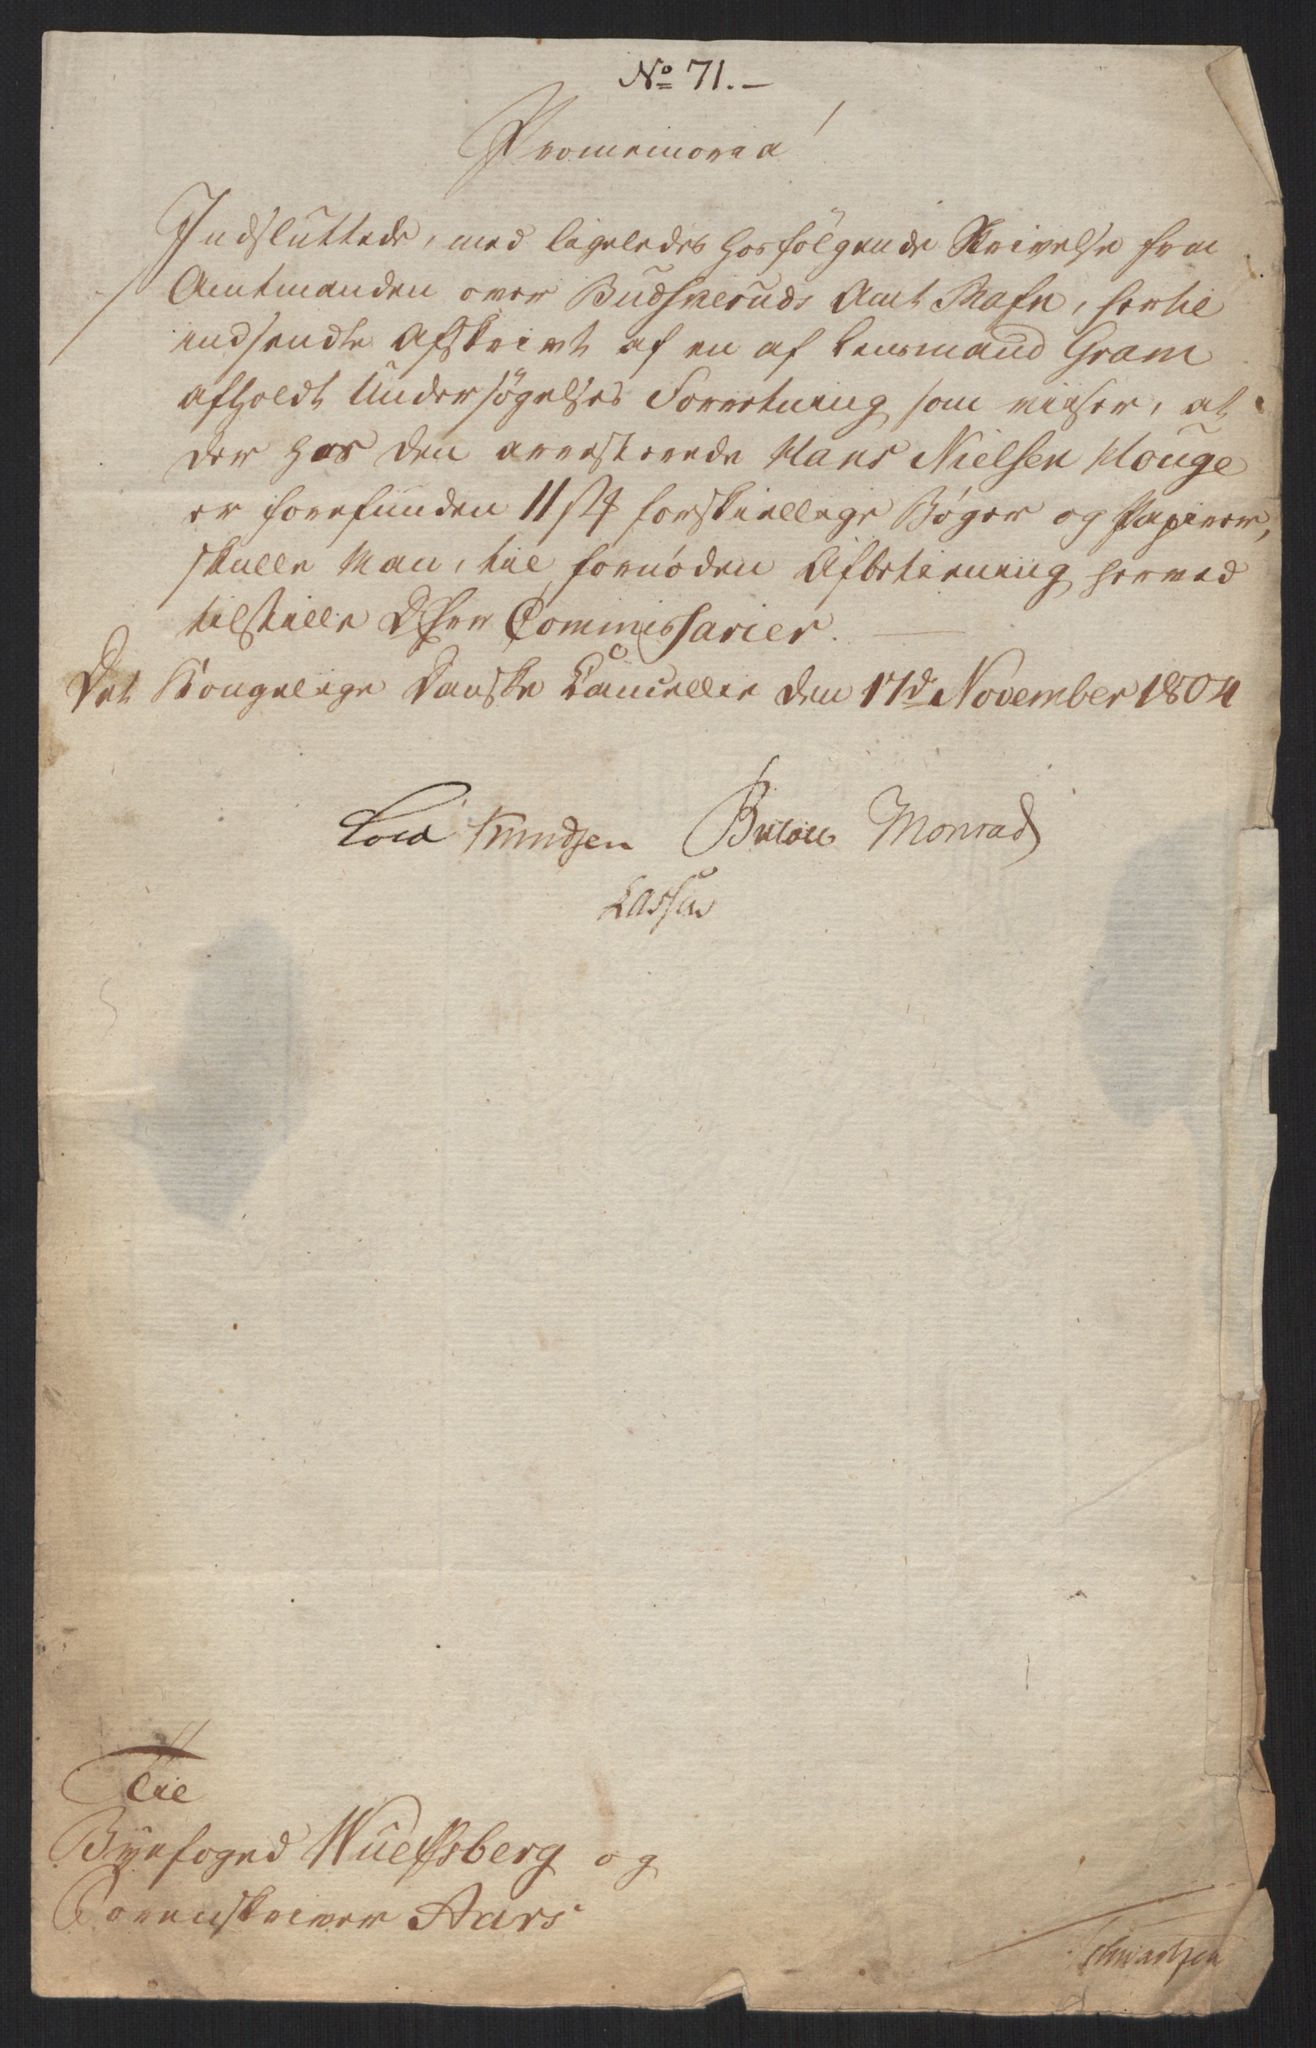 No 71.-
Promemoria
Indsluttede, med ligeledes hosfölgende Skrivelse fra
Amtmanden over Budskeruds Amt, hertil
indsendte Afskrivt af en af Lensmand Gram
afholdt Undersögelses Forretning som viiser, at
der hos den arresterede Hans Nielsen Houge
er forefunden 11 st forskiellige Bøger og Papirer,
skulle Man, til fornøden Afbetiening herved
tilstille DHrr Commissarier.
Det Kongelige Danske Cancellie den 17d November 1804
Knudsen Bülow Monrad
Lassen
Til
Byefoged Wulfsberg og
Sorenskriver Aars